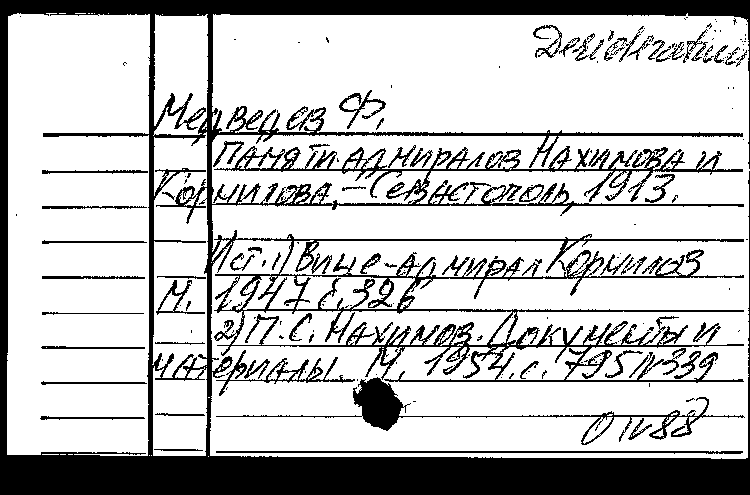 Desiderata
Медведев Ф.
Памяти адмиралов Нахимова и
Корнилова, – Севастополь, 1913.
Ист. 1) Вице-адмирал Корнилов
М. 1947 с. 326
2) П. С. Нахимов. Документы и
материалы. М. 1954. с. 795 N 339
О IV 88